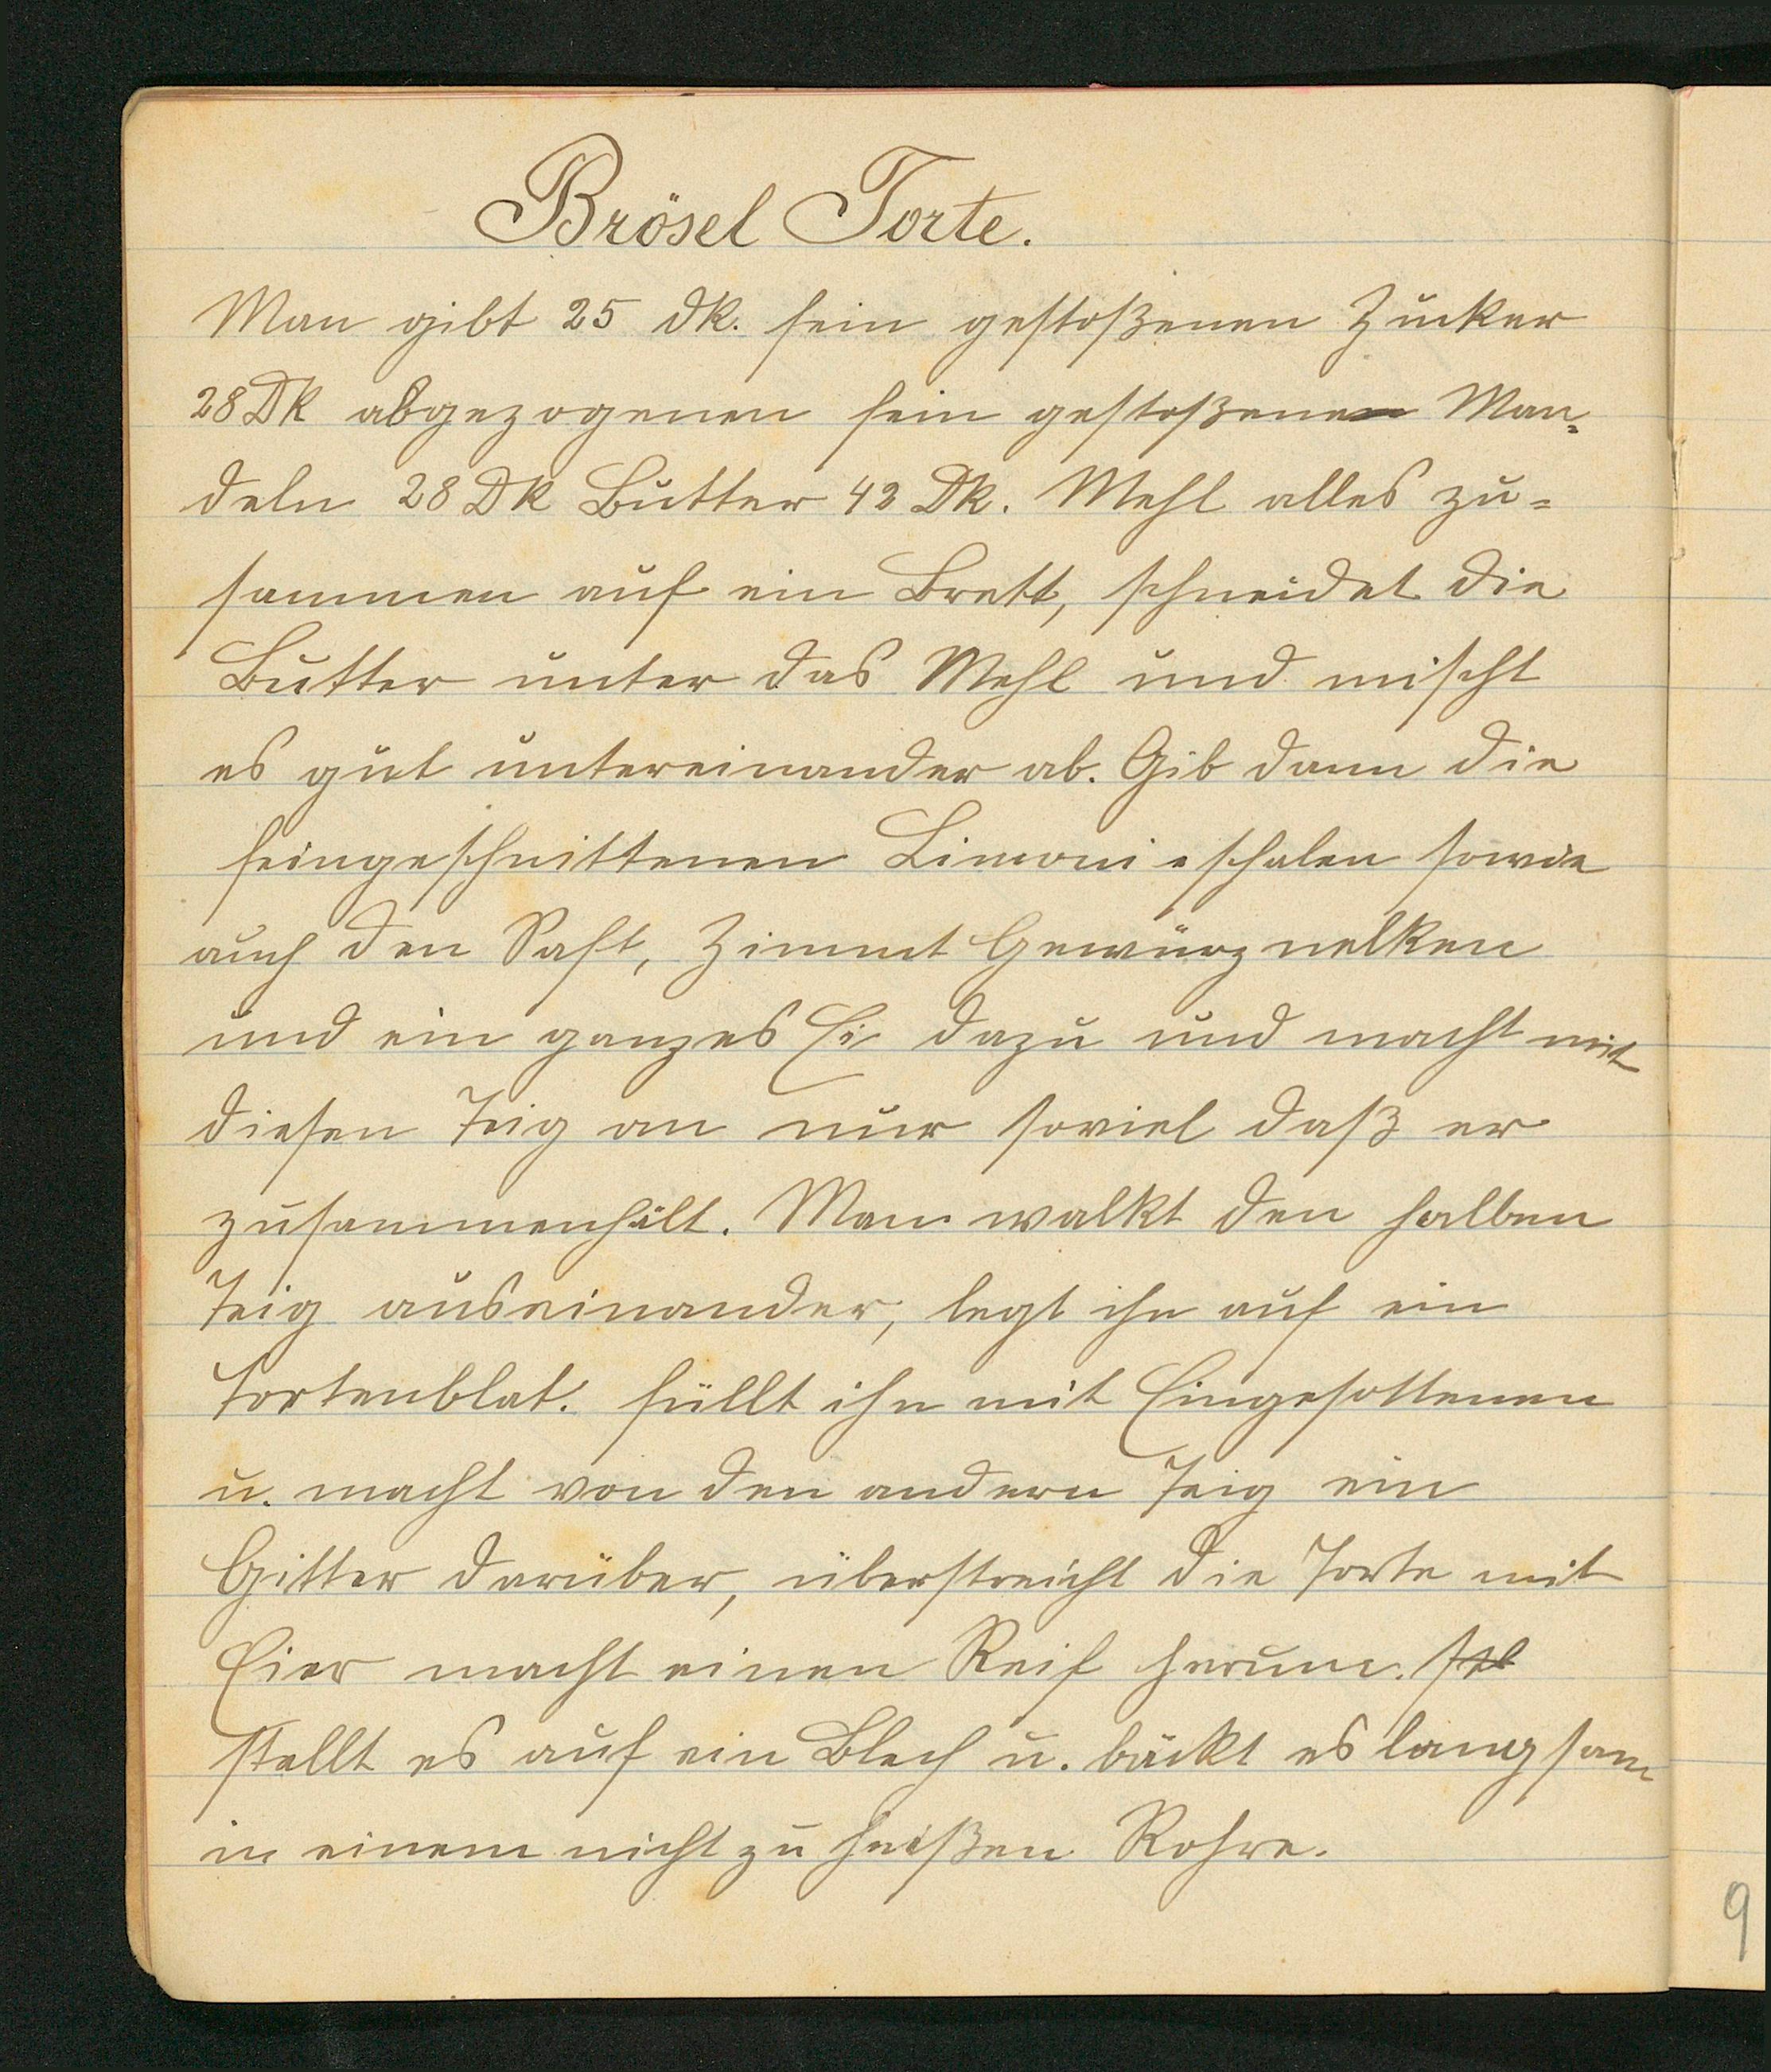 Brösel Torte.
Man gibt 25 dk. fein gestoßenen Zucker
28 Dk abgezogenen fein gestoßene Man=
deln 28 Dk Butter 42 Dk. Mehl alles zu=
sammen auf ein Brett, schneidet die
Butter unter das Mehl und mischt
es gut untereinander ab. Gib dann die
feingeschnittenen Limonieschalen sowie
auch den Saft, Zimmt Gewürznelken
und ein ganzes Ei dazu und macht mit
diesen Teig an nur soviel daß er
zusammenhält. Man walkt den halben
Teig auseinander, legt ihn auf ein
Tortenblat. füllt ihn mit Eingesottenen
u. macht von den andern Teig ein
Gitter darüber, überstreicht die Torte mit
Eier macht einen Reif herum.
stellt es auf ein Blech u. bäckt es langsam
in einem nicht zu heißen Rohre.
9